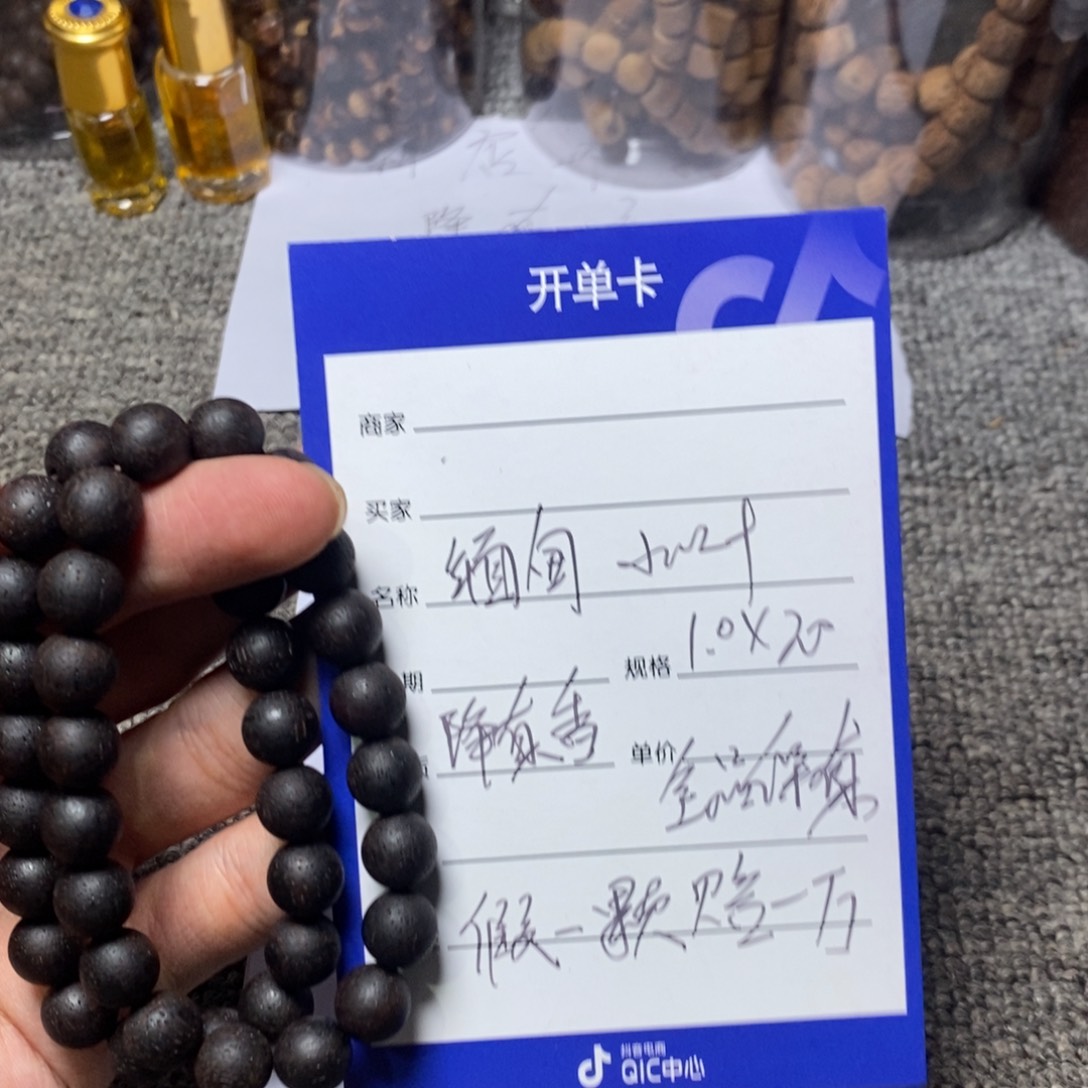 开单卡
商家
买家
名称 缅甸 小叶
期 规格 1.0X20
降真香 单价 全品保真
假一颗赔一万
抖音电商
QIC中心